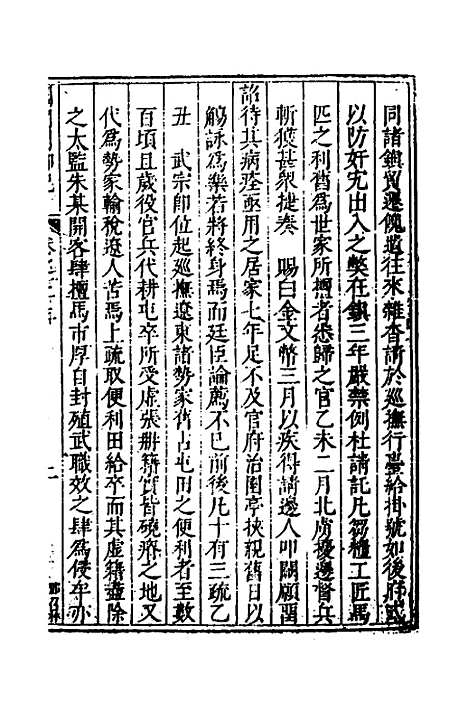 同諸鎮貿遷餽遺往來雜沓請於巡撫行臺給掛號如後府式
以防奸宄出入之弊在鎮三年嚴禁例杜請託凡芻糧工匠馬
匹之利舊爲世家所擅者悉歸之官乙未二月北虜擾邊督兵
斬獲甚衆捷奏　賜白金文幣三月以疾得請邊人叩闕願畱
詔待其病痊亟用之居家七年足不及官府治園亭挾親舊日以
觴詠爲樂若將終身焉而廷臣論薦不已前後凡十有三疏乙
丑　武宗即位起巡撫遼東諸勢家舊占屯田之便利者至數
百頃且歲役官兵代耕屯卒所受虛張册籍實皆磽瘠之地又
代爲勢家輸稅遼人苦焉上疏取便利田給卒而其虛籍盡除
之太監朱某開客肆擅馬市厚自封殖武職效之肆爲侵牟亦